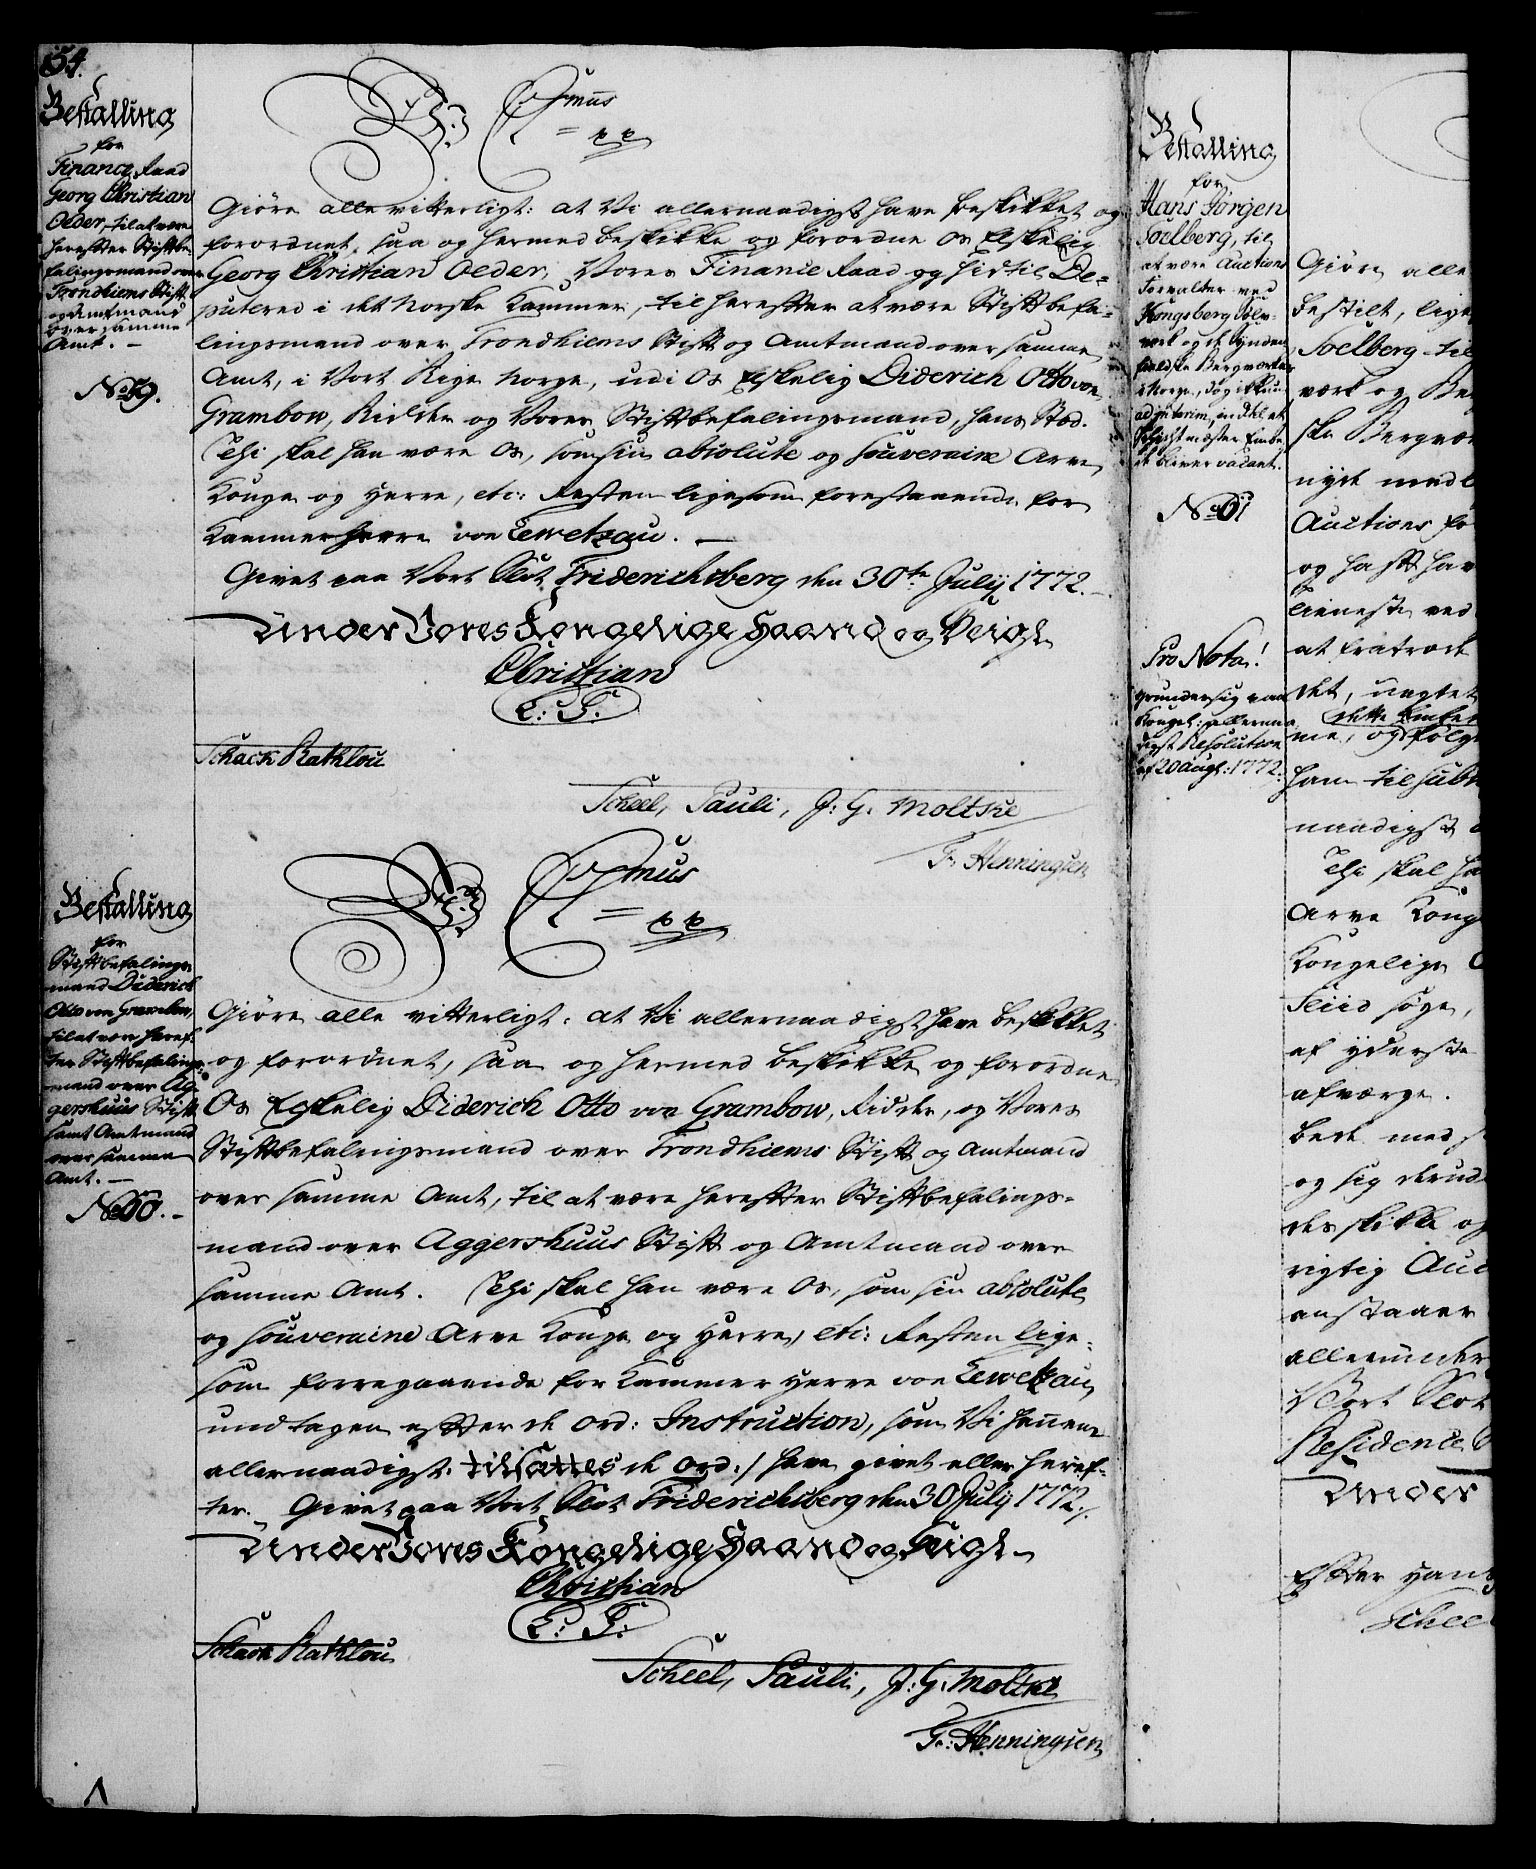 154.
Bestalling
for
Finance Raad
Georg Christian
Oeder, til at være
herefter Stiftbe-
falingsmand over
Trondhiems Stift
og Amtmand
over samme
Amt. –
No 59.
V. C. 7mus
= pp
Giøre alle vitterligt: at Vi allernaadigst have beskikket og
forordnet, saa og hermed beskikke og forordne Os Elskelig
Georg Christian Oeder, Vores Finance Raad og hidtil De-
puteret i det Norske Kammer, til herefter at være Stiftbefa-
lingsmand over Trondhiems Stift og Amtmand over samme
Amt, i Vort Rige Norge, udi Os Elskelig Diderich Otto von
Grambow, Ridder og Vores Stiftbefalingsmand, hans Sted.
Thi skal han være Os, som sin absolute og souveraine Arve
Konge og Herre, etc: Resten ligesom forestaaende for
Kammerherre von Lewetzau. –
Givet paa Vort Slot Friderichsberg den 30te Julij 1772. –
Under Vores Kongelige Haand og Seigl.
Christian
L: S.
Schack Rathlou
Scheel, Pauli, J: G. Moltke
F. Henningsen
Bestalling
for
Stiftbefalings-
mand Diderich
Otto von Grambow,
til at være heref-
ter Stiftbefalings-
mand over Ag-
gershuus Stift
samt Amtmand
over samme
Amt. –
No 60. –
V. C. 7mus
= pp
Giøre alle vitterligt: at Vi allernaadigst have beskikket
og forordnet, saa og hermed beskikke og forordne
Os Elskelig Diderich Otto von Grambow, Ridder, og Vores
Stiftbefalingsmand over Trondhiems Stift og Amtmand
over samme Amt, til at være herefter Stiftbefalings-
mand over Aggershuus Stift og Amtmand over
samme Amt. Thi skal han være Os, som sin absolute
og souveraine Arve Konge og Herre, etc: Resten lige-
som forregaaende for Kammer Herre von Lewetzau,
undtagen efter de Ord: Instruction, som Vi hannem
allernaadigst. tilsættes de Ord: / have givet eller heref-
ter. Givet paa Vort Slot Friderichsberg den 30 Julij 1772 /.
Under Vores Kongelige Haand og Seigl.
Christian
L: S:
Schack Rathlou
Scheel, Pauli, J: G. Moltke
F: Henningsen
Bestalling
for
Hans Jørgen
Soelberg, til
at være Auctions
Forvalter ved
Kongsberg Sølv-
verk og de Synden-
fieldske Bergverker
i Norge, dog ikkun
ad interim, indtil et
Embe-
de bliver vacant.
No 61
Pro Nota!
grunder sig paa
Kongel: allernaa-
digst Resolution
af 20 Augt: 1772.
Giøre alle
bestilt, lige
Soelberg til
værk og Ber
ske Bergvær
nyde medl
Auctions for
og hafft hav
tieneste ved
at fratræde
det, uagtet
dette Embe
me, og følge
ham til Sub
naadigst
Thi skal ha
Arve Kong
Kongelige
Fliid søge,
af yderste
afværge.
bede med
og sig derud
des skikke og
rigtig Auc
anstaaer
allerunder
Vort Slot
Residence
Under
Efter Hans
Scheel